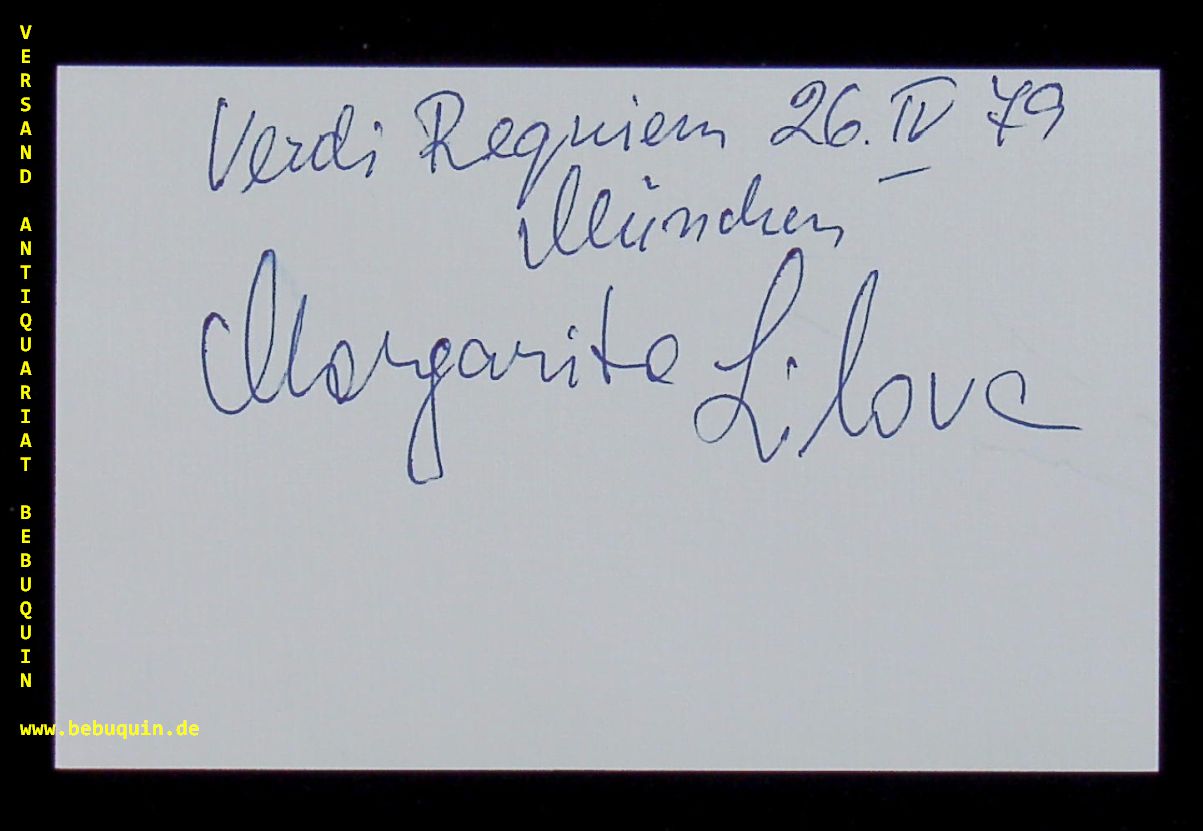 VERSAND ANTIQUARIAT BEBUQUIN
www.bebuquin.de
Verdi Requiem 26. IV 79
München
Margarita Lilova